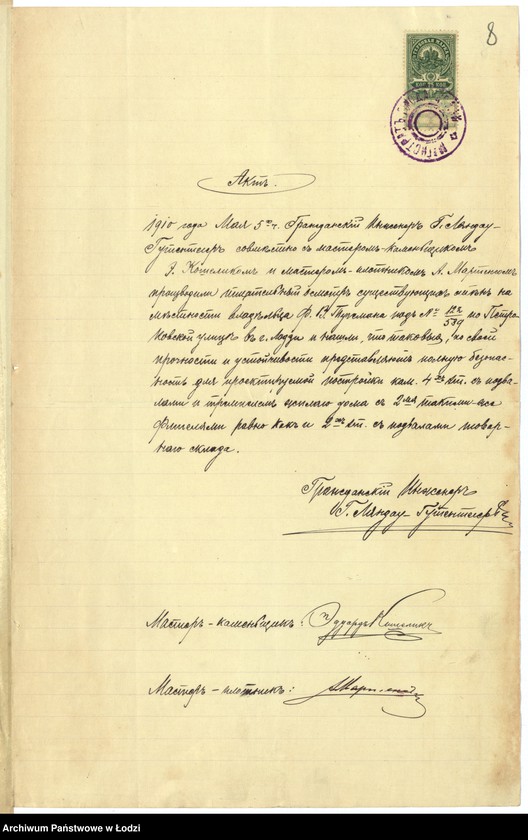 8
Актъ.
1910 года Мая 5го ч. Гражданскій Инженеръ Г. Ляндау-
Гутентегеръ совмѣстно съ мастеромъ-каменьщикомъ
Э. Кошеликомъ и мастеромъ-плотникомъ А.
производили тщательный осмотръ существующихъ стѣнъ на
мѣстности владѣльца Ф. Ю. подъ № 539 по Петро
ковской улицѣ въ г. Лодзи и нашли, что таковыя, по своей
прочности и устойчивости представляютъ полную безопас-
ность для проектируемой постройки кам. 4хъ эт. съ подва-
лами и жилого дома съ 2мя такими-же
флигелями равно какъ и 2хъ эт. съ подвалами товар-
наго склада.
Гражданскій Инженеръ
Г. Ляндау Гутентегеръ
Мастеръ-каменьщикъ: Эдуардъ Кошеликъ
Мастеръ-плотникъ:
Archiwum Państwowe w Łodzi